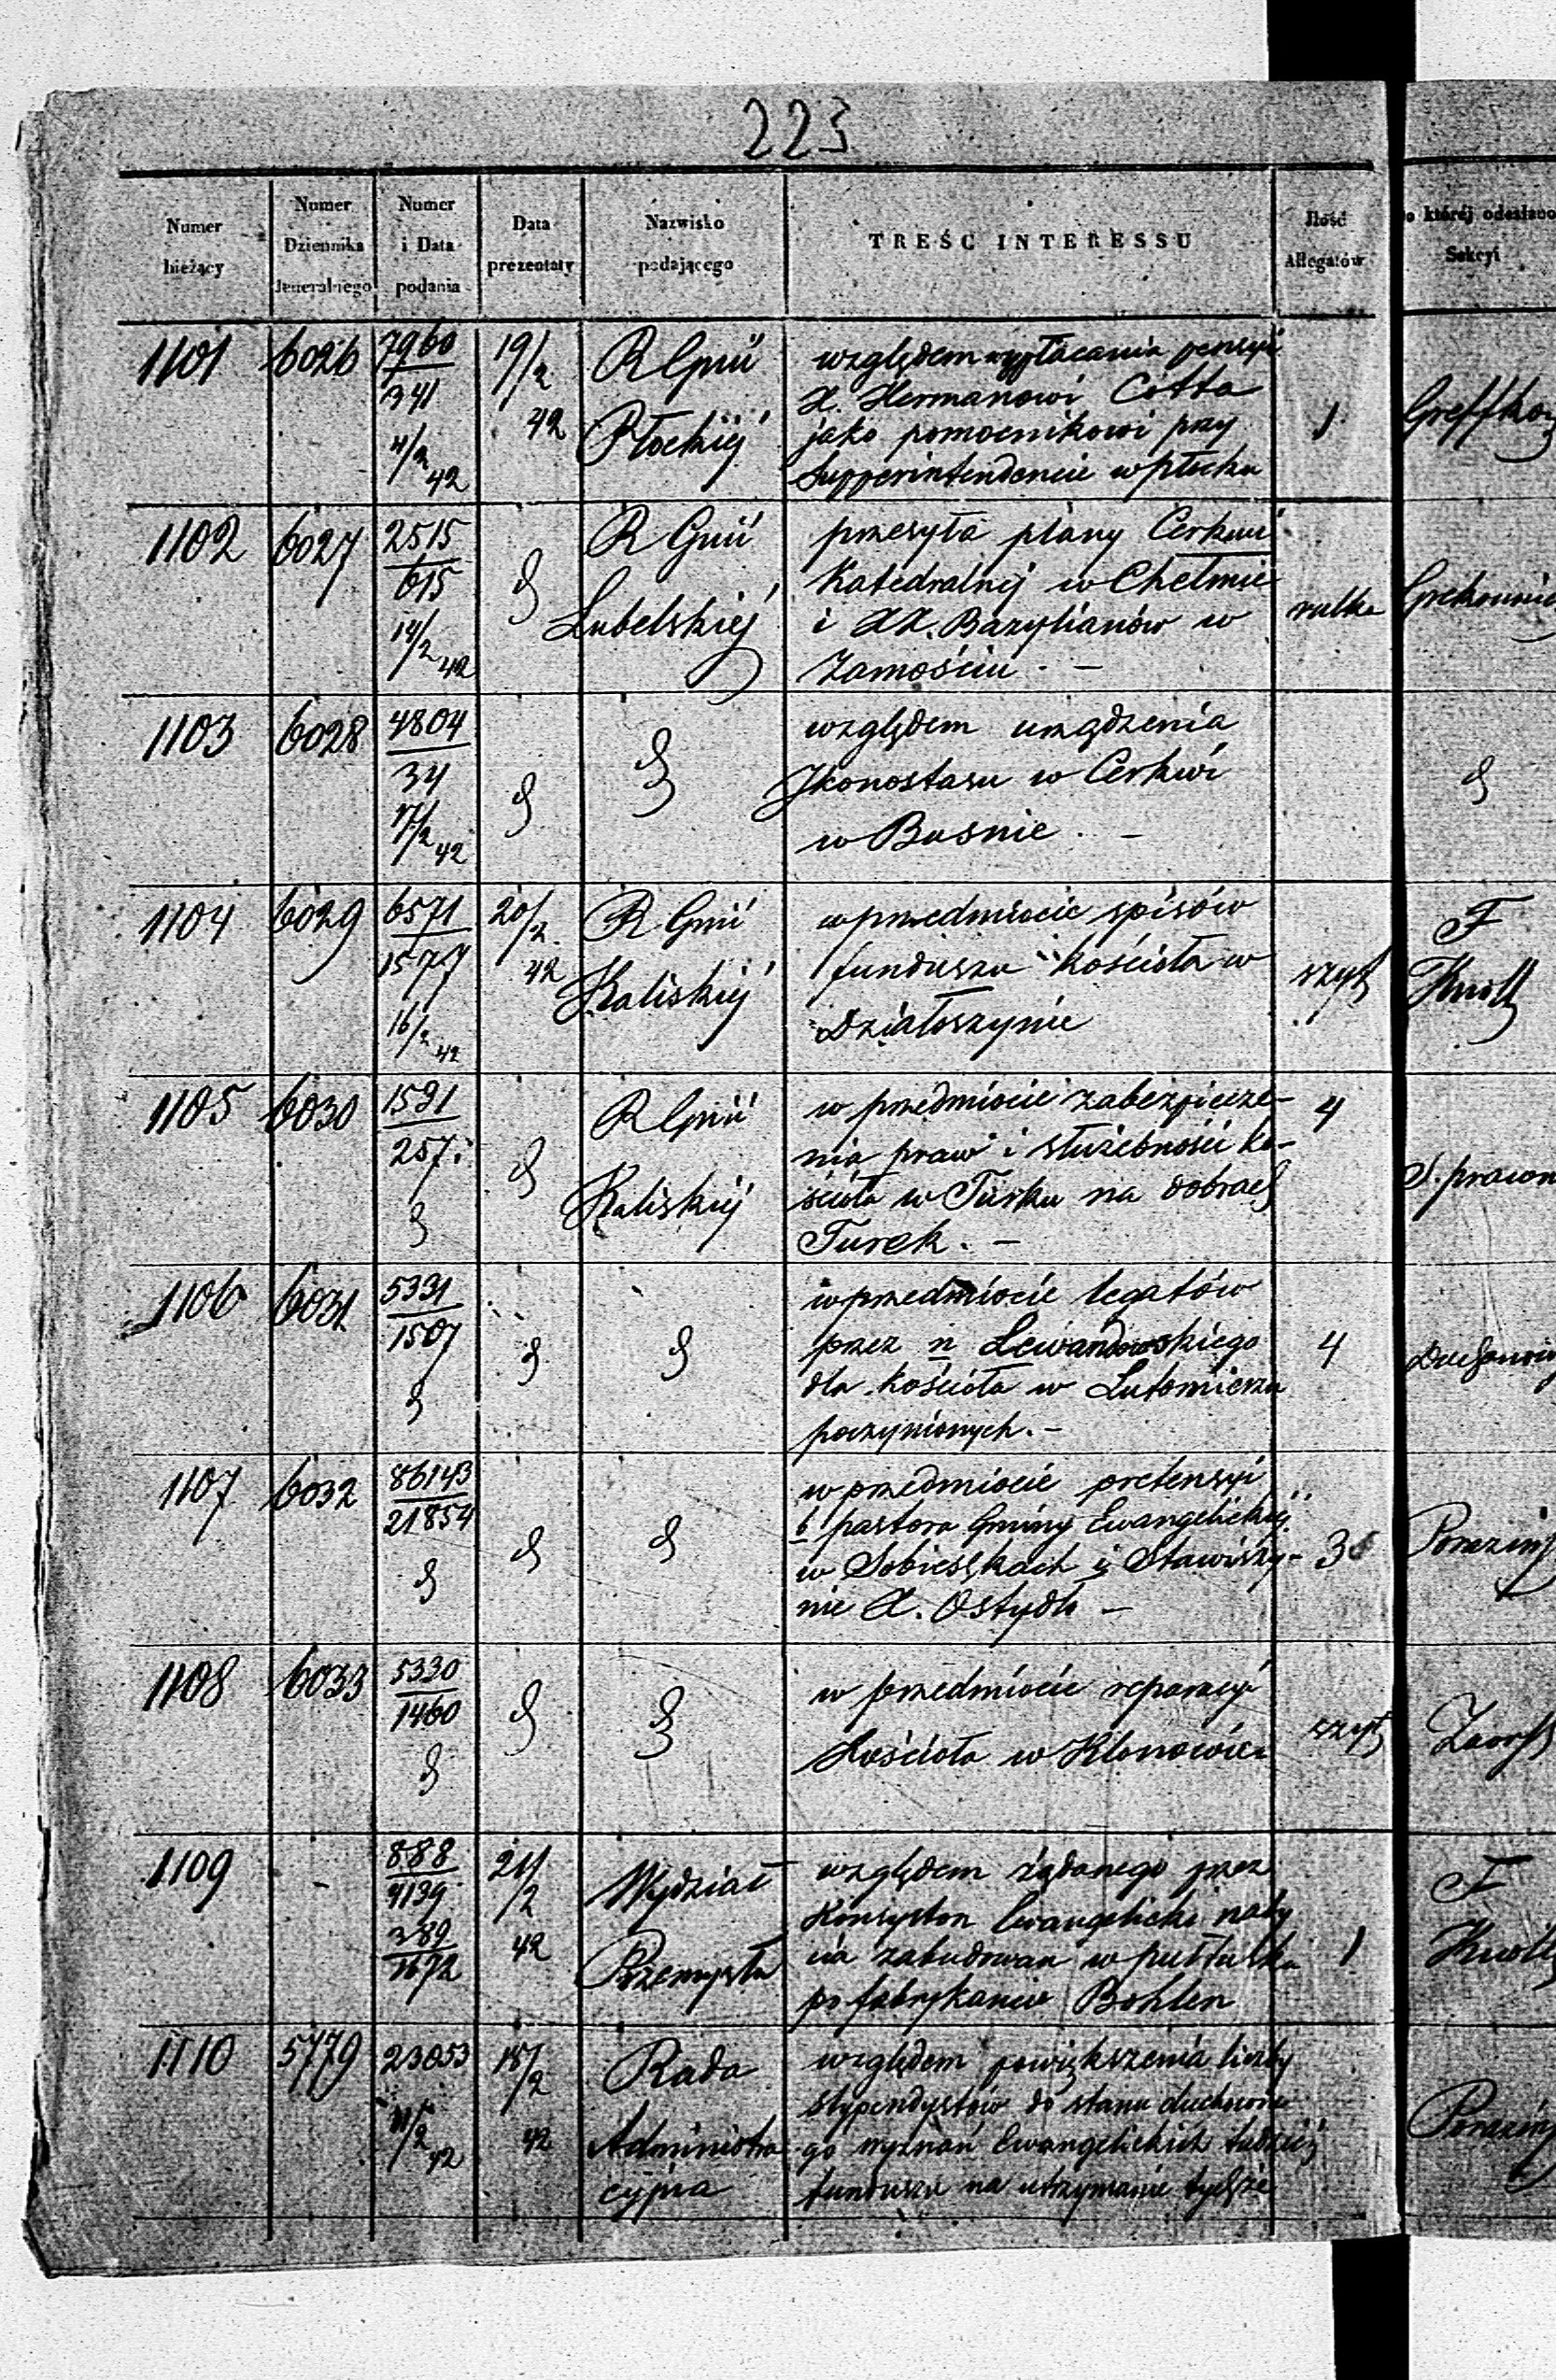 223
Numer bieżący
Numer Dziennika Jeneralnego
Numer i Data podania
Data prezentaty
Nazwisko podającego
TREŚĆ INTERESSU
Ilość Allegatów
o której odesłano Sekcyi
1101 6026 7960/341 4/2 42 19/2 42 R Gnii Płockiéj
względem wypłacania pensyi
X. Hermanowi Cotta
jako pomocnikowi przy
Supperintendencie w płocku
1
1102 6027 2515/615 14/2 42 R Gnii Lubelskiéj
przesyła plany Cerkwi
Katedralnéj w Chełmie
i XX. Bazylianów w
Zamościu. —
rulka
1103 6028 4804/34 7/2 42
względem urządzenia
Ikonostasu w Cerkwi
w Busnie. —
1104 6029 6571/1577 16/2 42 20/2 42 R Gnii Kaliskiéj
w przedmiocie spisów
funduszu kościoła w
Działoszynie
szyt
F
1105 6030 1591/257 R Gnii Kaliskiéj
w przedmiocie zabezpiecze-
nia praw i służebności ko-
ścioła w Turku na dobrach
Turek. —
4
S. prawn
1106 6031 5391/1507
w przedmiocie legatów
przez n Lewandowskiego
dla kościoła w Lutomiersku
poczynionych. —
4
1107 6032 86143/21854
w przedmiocie pretensyi
b pastora Gminy Ewangelickiéj
w Sobiesękach i Stawiszy-
nie X. Ostydt —
3
1108 6033 5330/1460
w przedmiocie reparacyi
Kościoła w Klonowie
szyt
1109 - 888/4139 389/1672 21/2 42 Wydział Przemysłu
względem żądanego przez
Konsystorz Ewangelicki naby
cia zabudowań w pułtusku
po fabrykancie Bohlen
1
F
1110 5779 23053 11/2 42 18/2 42 Rada Administra cyjna
względem powiększenia liczby
stypendystów do stanu duchowne
go wyznań Ewangelickich tudzież
funduszu na utrzymanie tychże